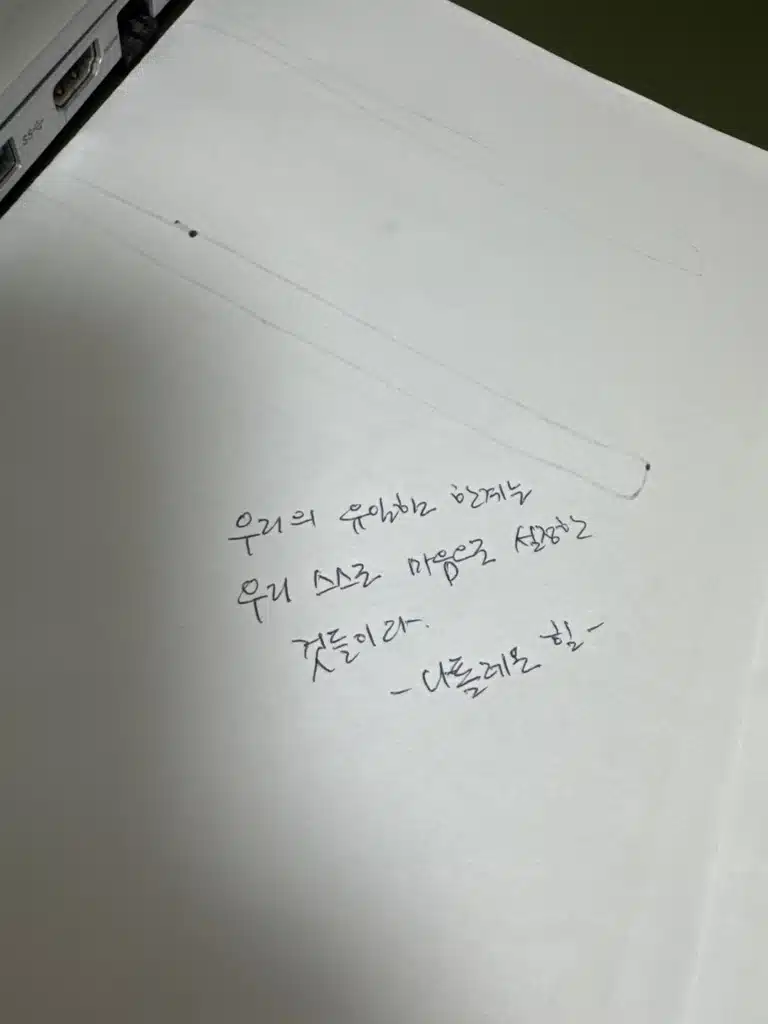 SS
우리의 유일한 한계는
우리 스스로 마음으로 설정한
것들이라.
- 나폴레온 힐 -